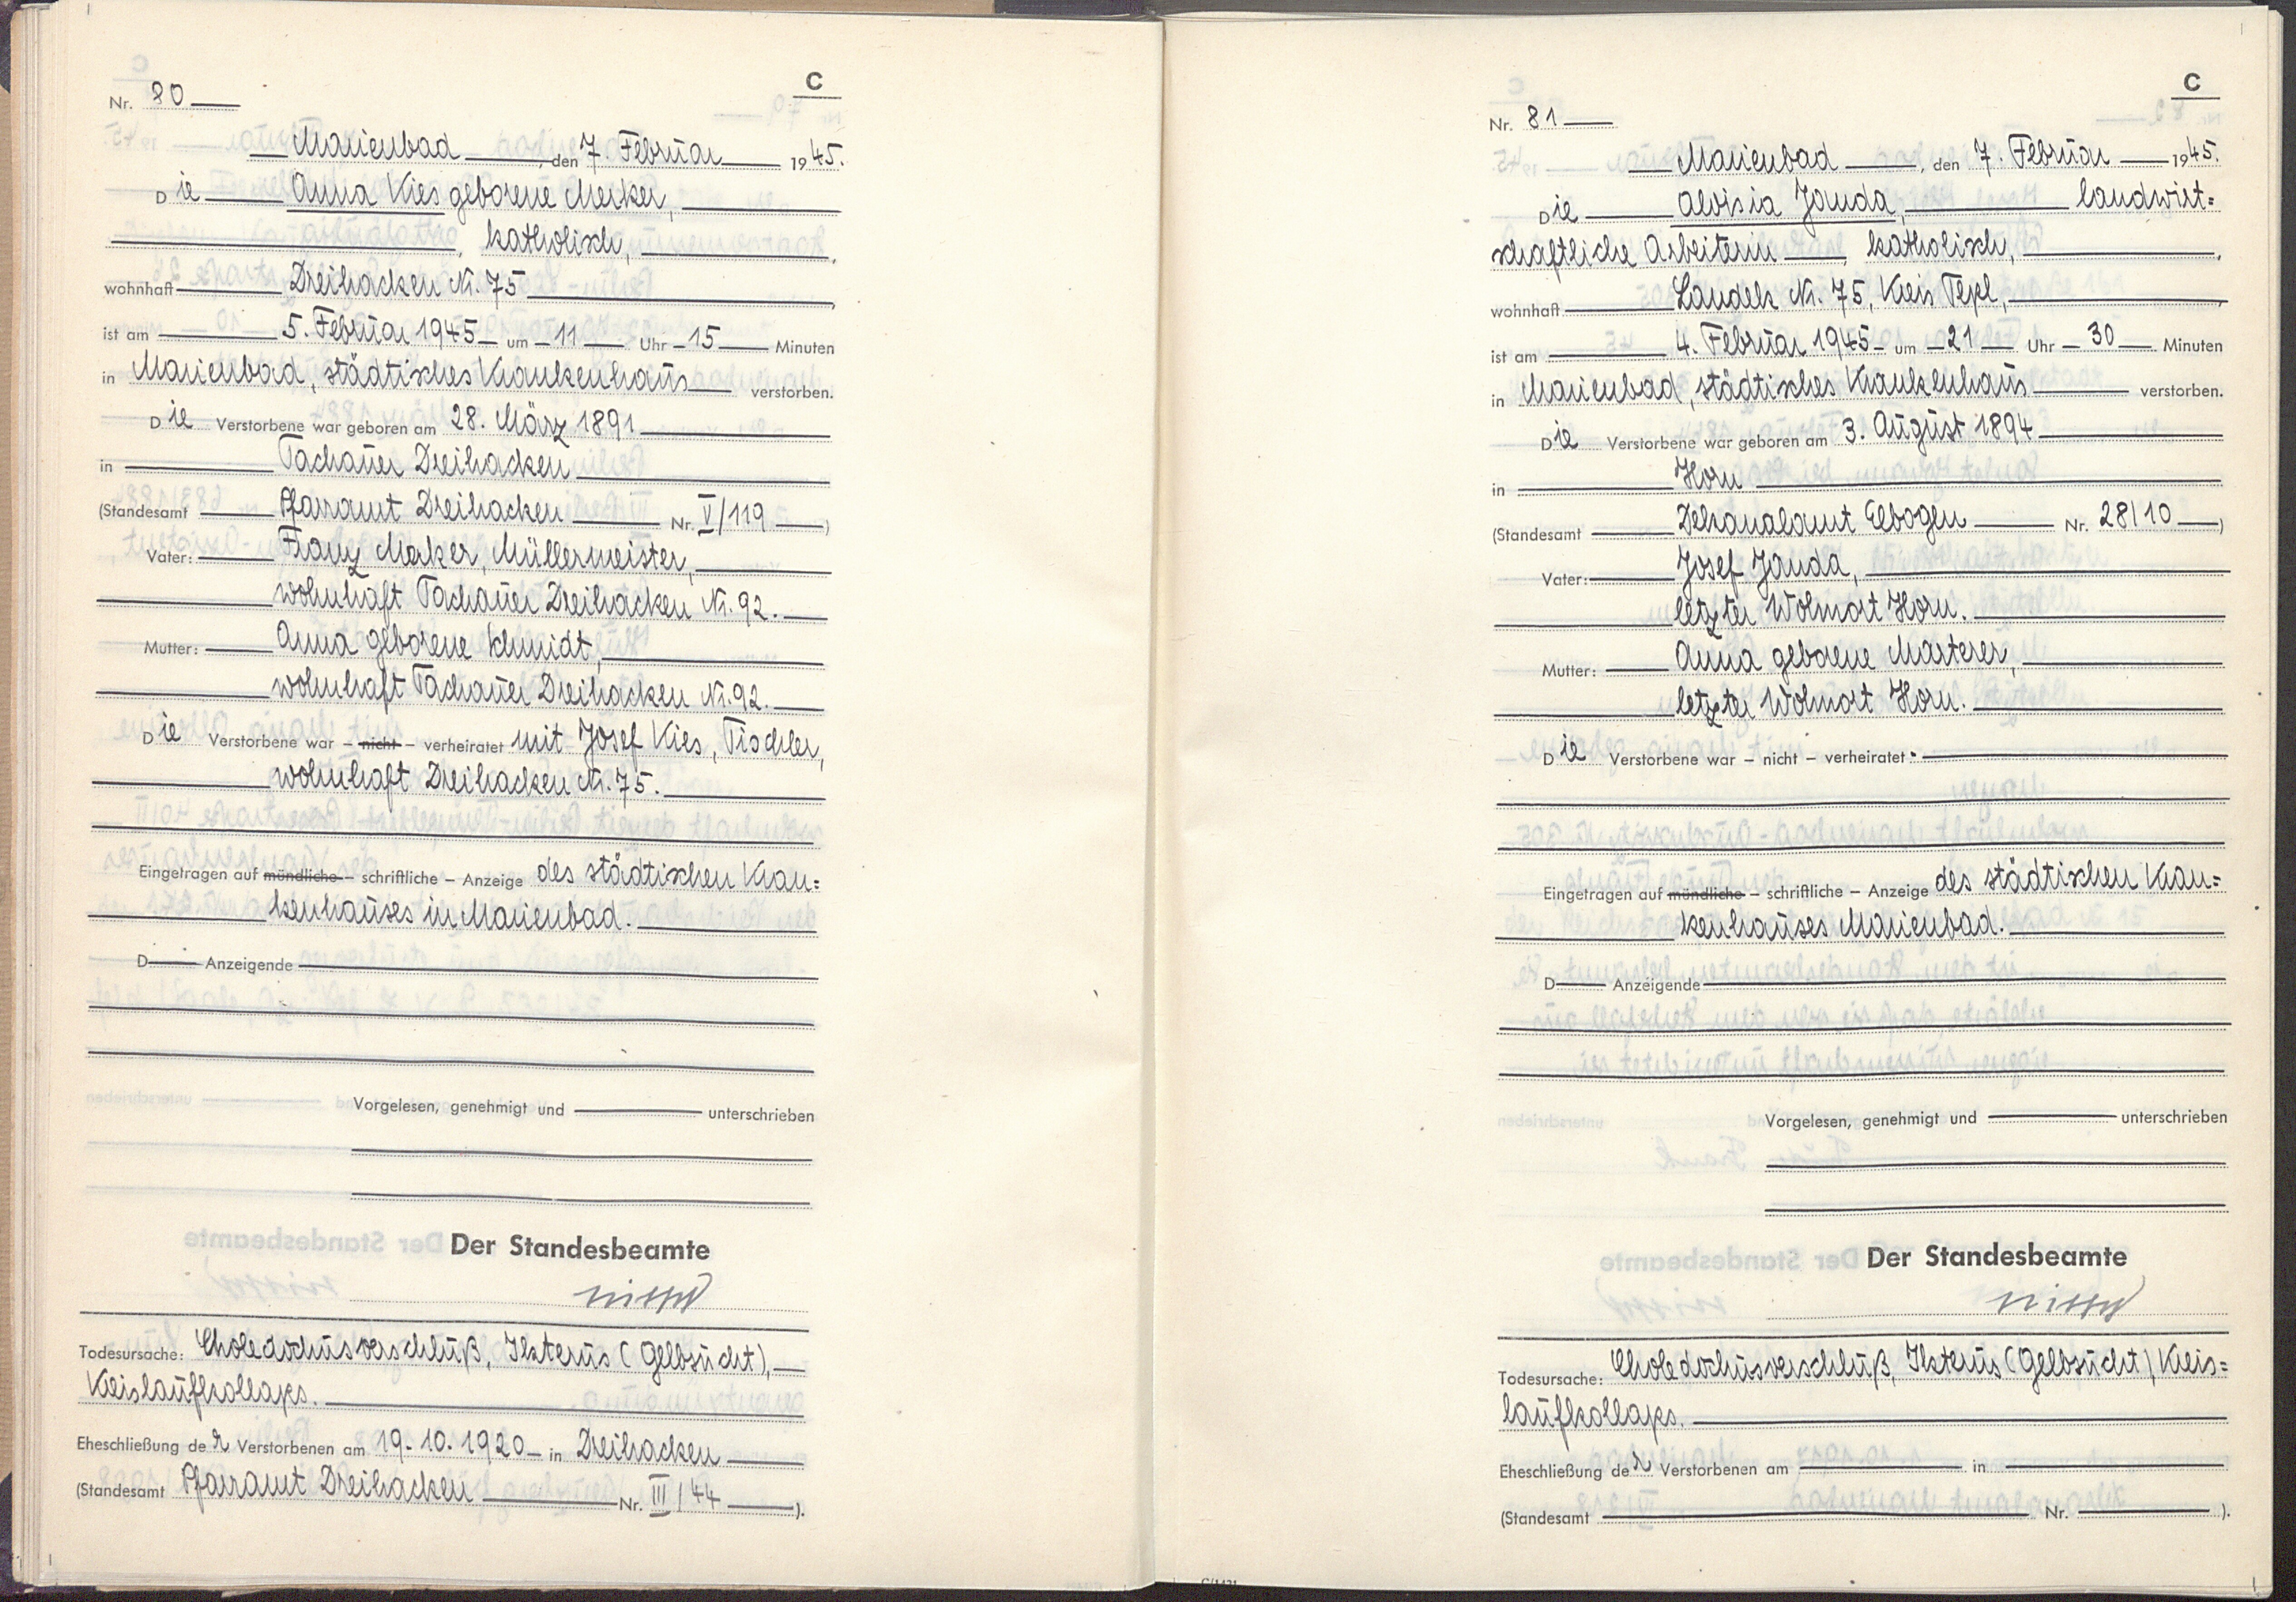 C
Nr. 80
Marienbad, den 7. Februar 1945.
Die Anna Kies geborene Merker,
, katholisch,
wohnhaft Dreihacken Nr. 75,
ist am 5. Februar 1945 um 11 Uhr 15 Minuten
in Marienbad, städtisches Krankenhaus verstorben.
Die Verstorbene war geboren am 28. März 1891
in Tachauer Dreihacken
(Standesamt Pfarramt Dreihacken Nr. V/119)
Vater: Franz Merker, Müllermeister,
wohnhaft Tachauer Dreihacken Nr. 92.
Mutter: Anna geborene Schmidt,
wohnhaft Tachauer Dreihacken Nr. 92.
Die Verstorbene war – nicht – verheiratet mit Josef Kies, Tischler,
wohnhaft Dreihacken Nr. 75.
Eingetragen auf mündliche – schriftliche – Anzeige des städtischen Kran=
kenhauses in Marienbad.
D Anzeigende
Vorgelesen, genehmigt und unterschrieben
Der Standesbeamte
Todesursache: Choledochusverschluß, Ikterus (Gelbsucht),
Kreislaufkollaps.
Eheschließung der Verstorbenen am 19.10.1920 in Dreihacken
(Standesamt Pfarramt Dreihacken Nr. III/44).
C
Nr. 81
Marienbad, den 7. Februar 1945.
Die Aloisia Janda, landwirt=
schaftliche Arbeiterin, katholisch,
wohnhaft Landek Nr. 75, Kreis Tepl,
ist am 4. Februar 1945 um 21 Uhr 30 Minuten
in Marienbad, städtisches Krankenhaus verstorben.
Die Verstorbene war geboren am 3. August 1894
in Horn
(Standesamt Dekanalamt Elbogen Nr. 28/10)
Vater: Josef Janda,
letzter Wohnort Horn.
Mutter: Anna geborene Masterer,
letzter Wohnort Horn.
Die Verstorbene war – nicht – verheiratet.
Eingetragen auf mündliche – schriftliche – Anzeige des städtischen Kran=
kenhauses Marienbad.
D Anzeigende
Vorgelesen, genehmigt und unterschrieben
Der Standesbeamte
Todesursache: Choledochusverschluß, Ikterus (Gelbsucht), Kreis=
laufkollaps.
Eheschließung der Verstorbenen am in
(Standesamt Nr. ).